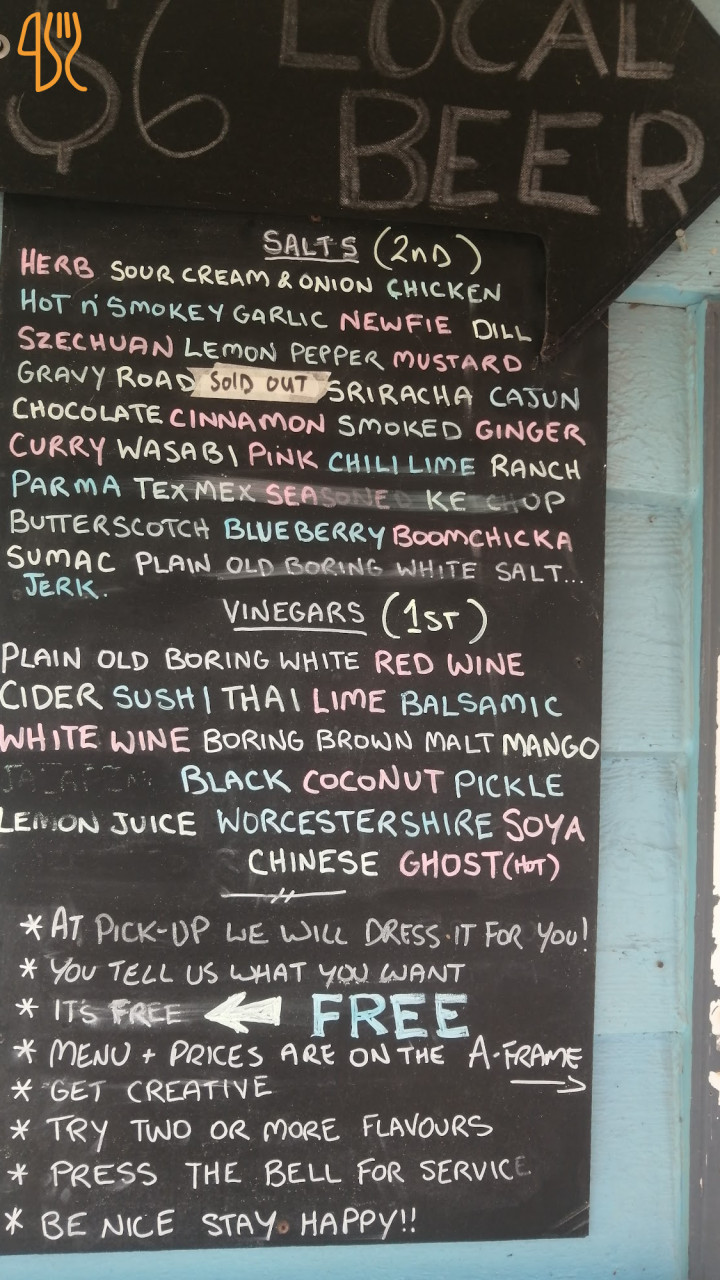 $6 LOCAL
BEER
SALTS (2ND)
HERB SOUR CREAM & ONION CHICKEN
HOT n' SMOKEY GARLIC NEWFIE DILL
SZECHUAN LEMON PEPPER MUSTARD
GRAVY ROAD SOLD OUT SRIRACHA CAJUN
CHOCOLATE CINNAMON SMOKED GINGER
CURRY WASABI PINK CHILI LIME RANCH
PARMA TEX MEX SEASONED KE CHUP
BUTTERSCOTCH BLUEBERRY BOOMCHICKA
SUMAC PLAIN OLD BORING WHITE SALT...
JERK.
VINEGARS (1ST)
PLAIN OLD BORING WHITE RED WINE
CIDER SUSHI THAI LIME BALSAMIC
WHITE WINE BORING BROWN MALT MANGO
BLACK COCONUT PICKLE
LEMON JUICE WORCESTERSHIRE SOYA
CHINESE GHOST (HOT)
* AT PICK-UP WE WILL DRESS IT FOR YOU!
* YOU TELL US WHAT YOU WANT
* IT'S FREE FREE
* MENU + PRICES ARE ON THE A-FRAME
* GET CREATIVE
* TRY TWO OR MORE FLAVOURS
* PRESS THE BELL FOR SERVICE
* BE NICE STAY HAPPY!!